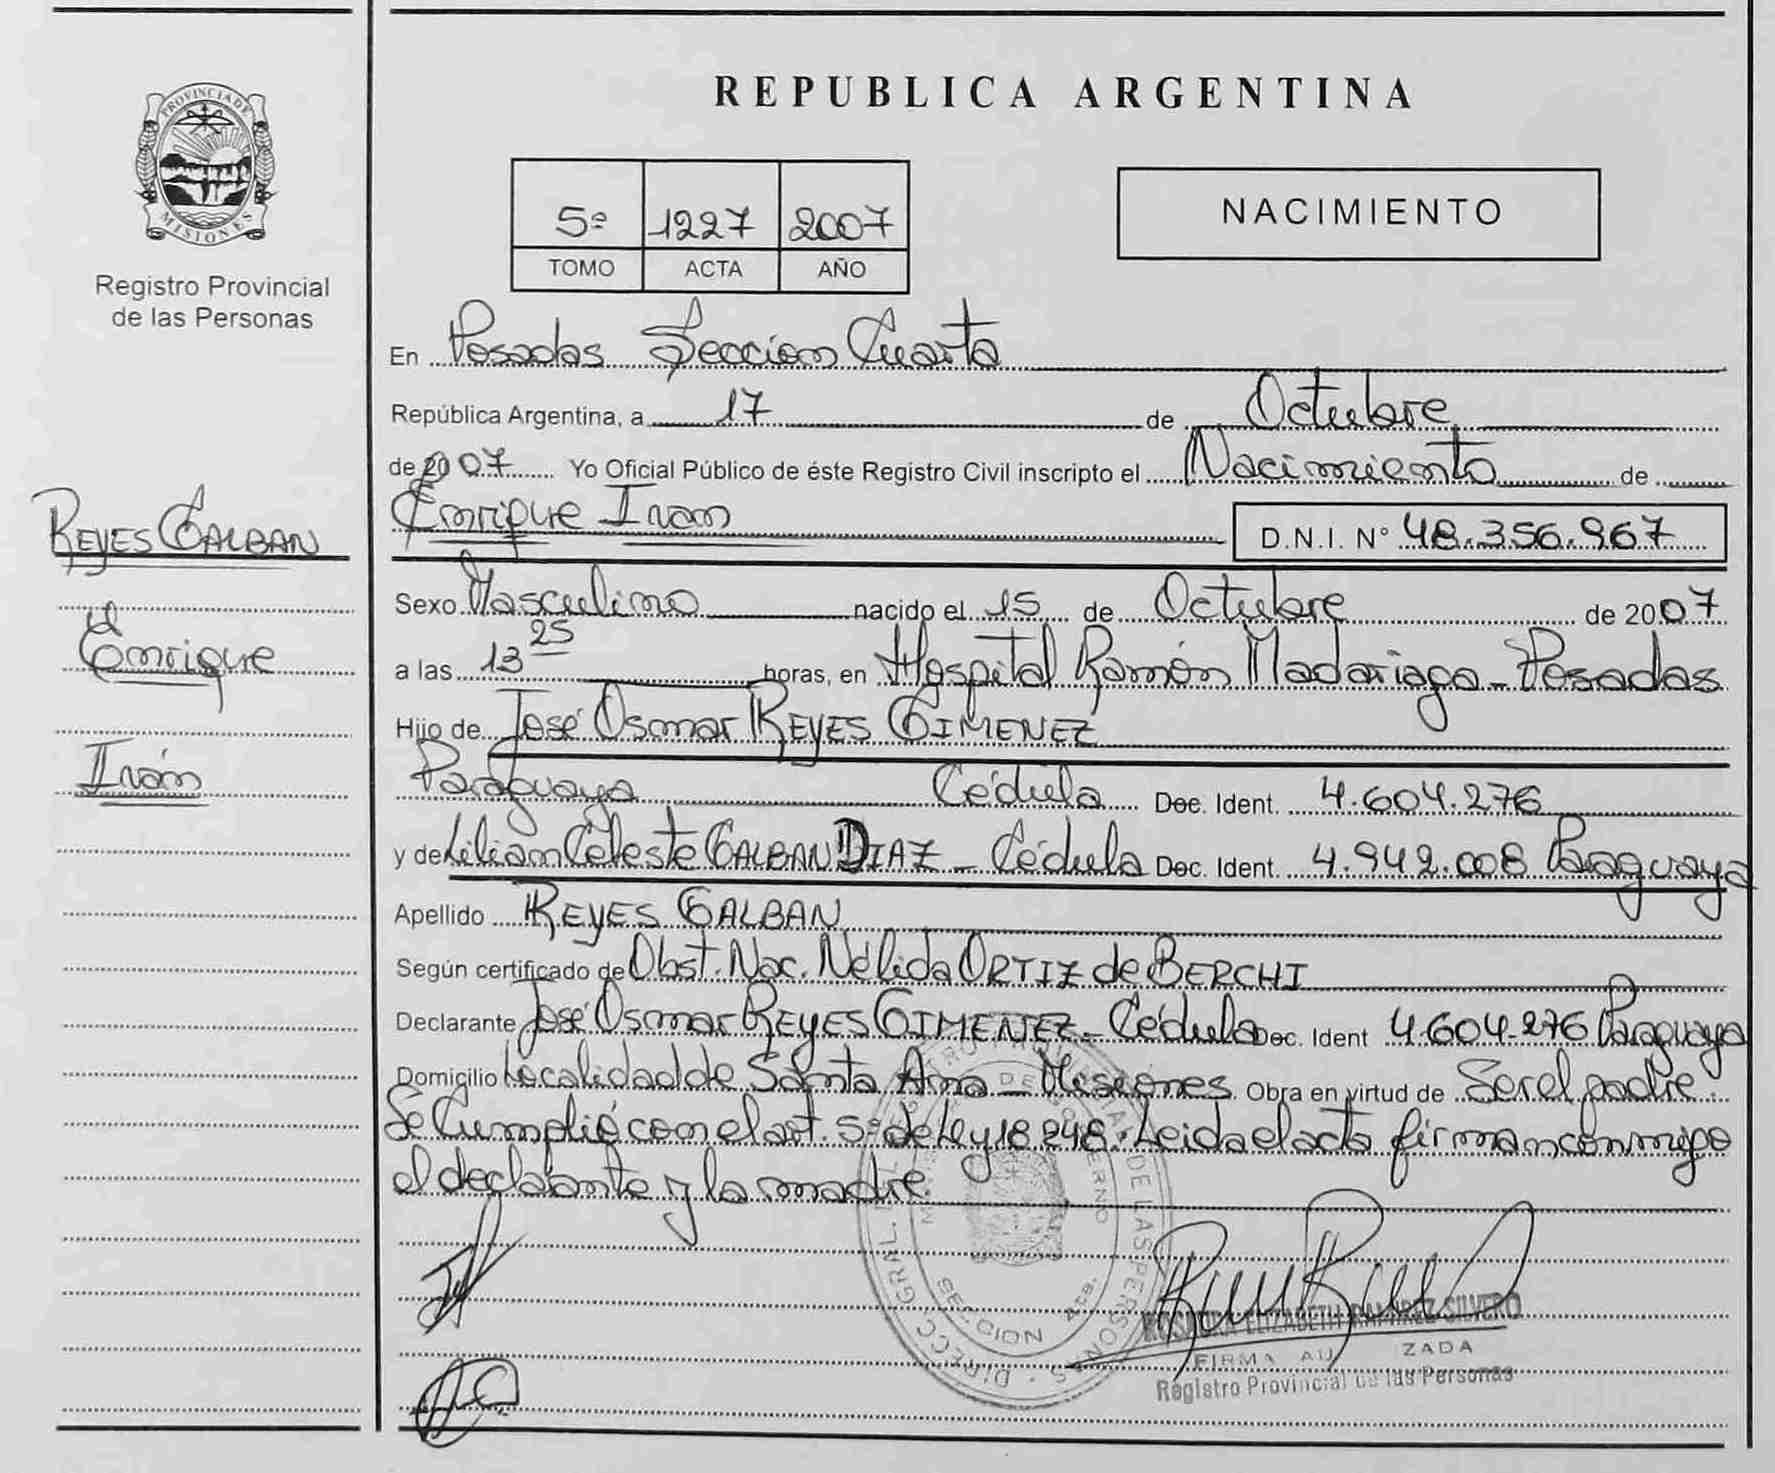 PROVINCIA DE
MISIONES
Registro Provincial
de las Personas
REYES GALBAN
Enrique
Iván
REPUBLICA ARGENTINA
5º 1227 2007
TOMO ACTA AÑO
NACIMIENTO
En Posadas Seccion Cuarta
República Argentina, a 17 de Octubre
de 2007 Yo Oficial Público de éste Registro Civil inscripto el Nacimiento de
Enrique Ivan
D.N.I. Nº 48.356.967
Sexo Masculino nacido el 15 de Octubre de 2007
a las 13 25 horas, en Hospital Ramón Madariaga - Posadas
Hijo de José Osmar REYES GIMENEZ
Paraguaya Cédula Doc. Ident. 4.604.276
y de Lilian Celeste GALBAN DIAZ - Cédula Doc. Ident. 4.942.008 Paraguaya
Apellido REYES GALBAN
Según certificado de Obst. Nac. Nélida ORTIZ de BERCHI
Declarante José Osmar REYES GIMENEZ - Cédula Doc. Ident 4.604.276 Paraguaya
Domicilio Localidad de Santa Ana - Misiones. Obra en virtud de Ser el padre.
Se Cumplió con el art. 5º de Ley 18.248. Leida el acta firman conmigo
el declarante y la madre.
DE LAS PERSONAS
DIRECC. GRAL.
SECCION 4ta.
ELIZABETH RAMIREZ SILVERO
FIRMA AU ZADA
Registro Provincial de las Personas